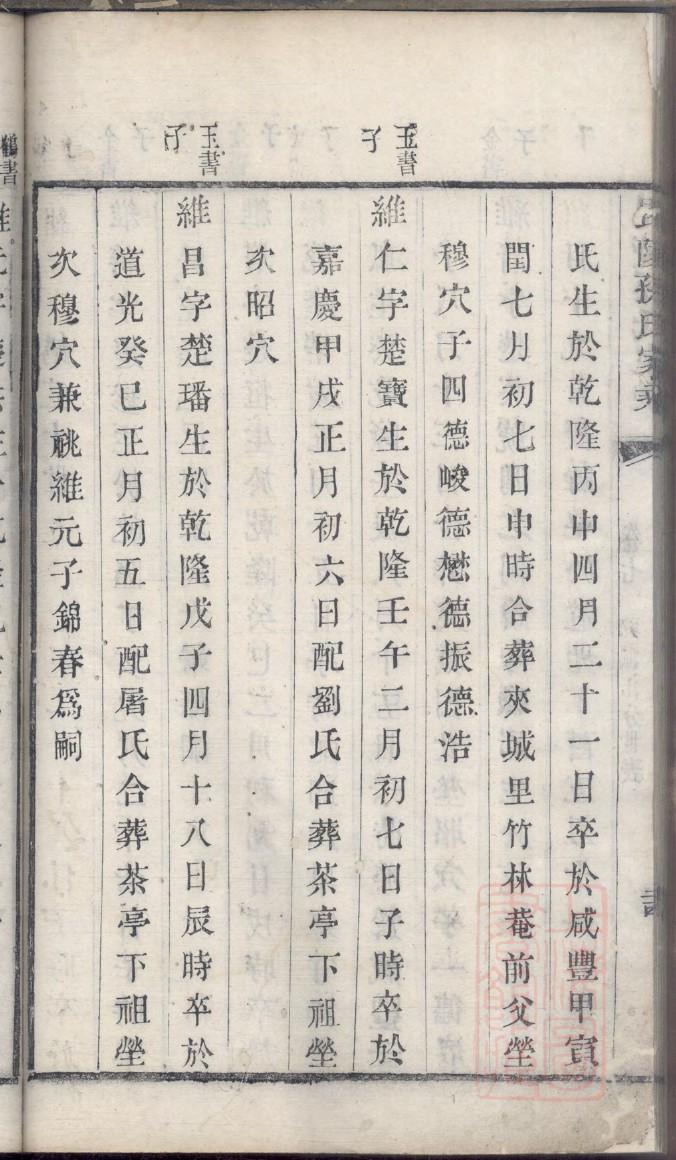 氏生於乾隆丙申四月二十一日卒於咸豐甲寅
閏七月初七日申時合葬夾城里竹林菴前父塋
穆穴子四德峻德懋德振德浩
玉書子
維仁字楚寶生於乾隆壬午三月初七日子時卒於
嘉慶甲戌正月初六日配劉氏合葬茶亭下祖塋
次昭穴
玉書子
維昌字楚璠生於乾隆戊子四月十八日辰時卒於
道光癸巳正月初五日配屠氏合葬茶亭下祖塋
次穆穴兼祧維元子錦春爲嗣
鶴書